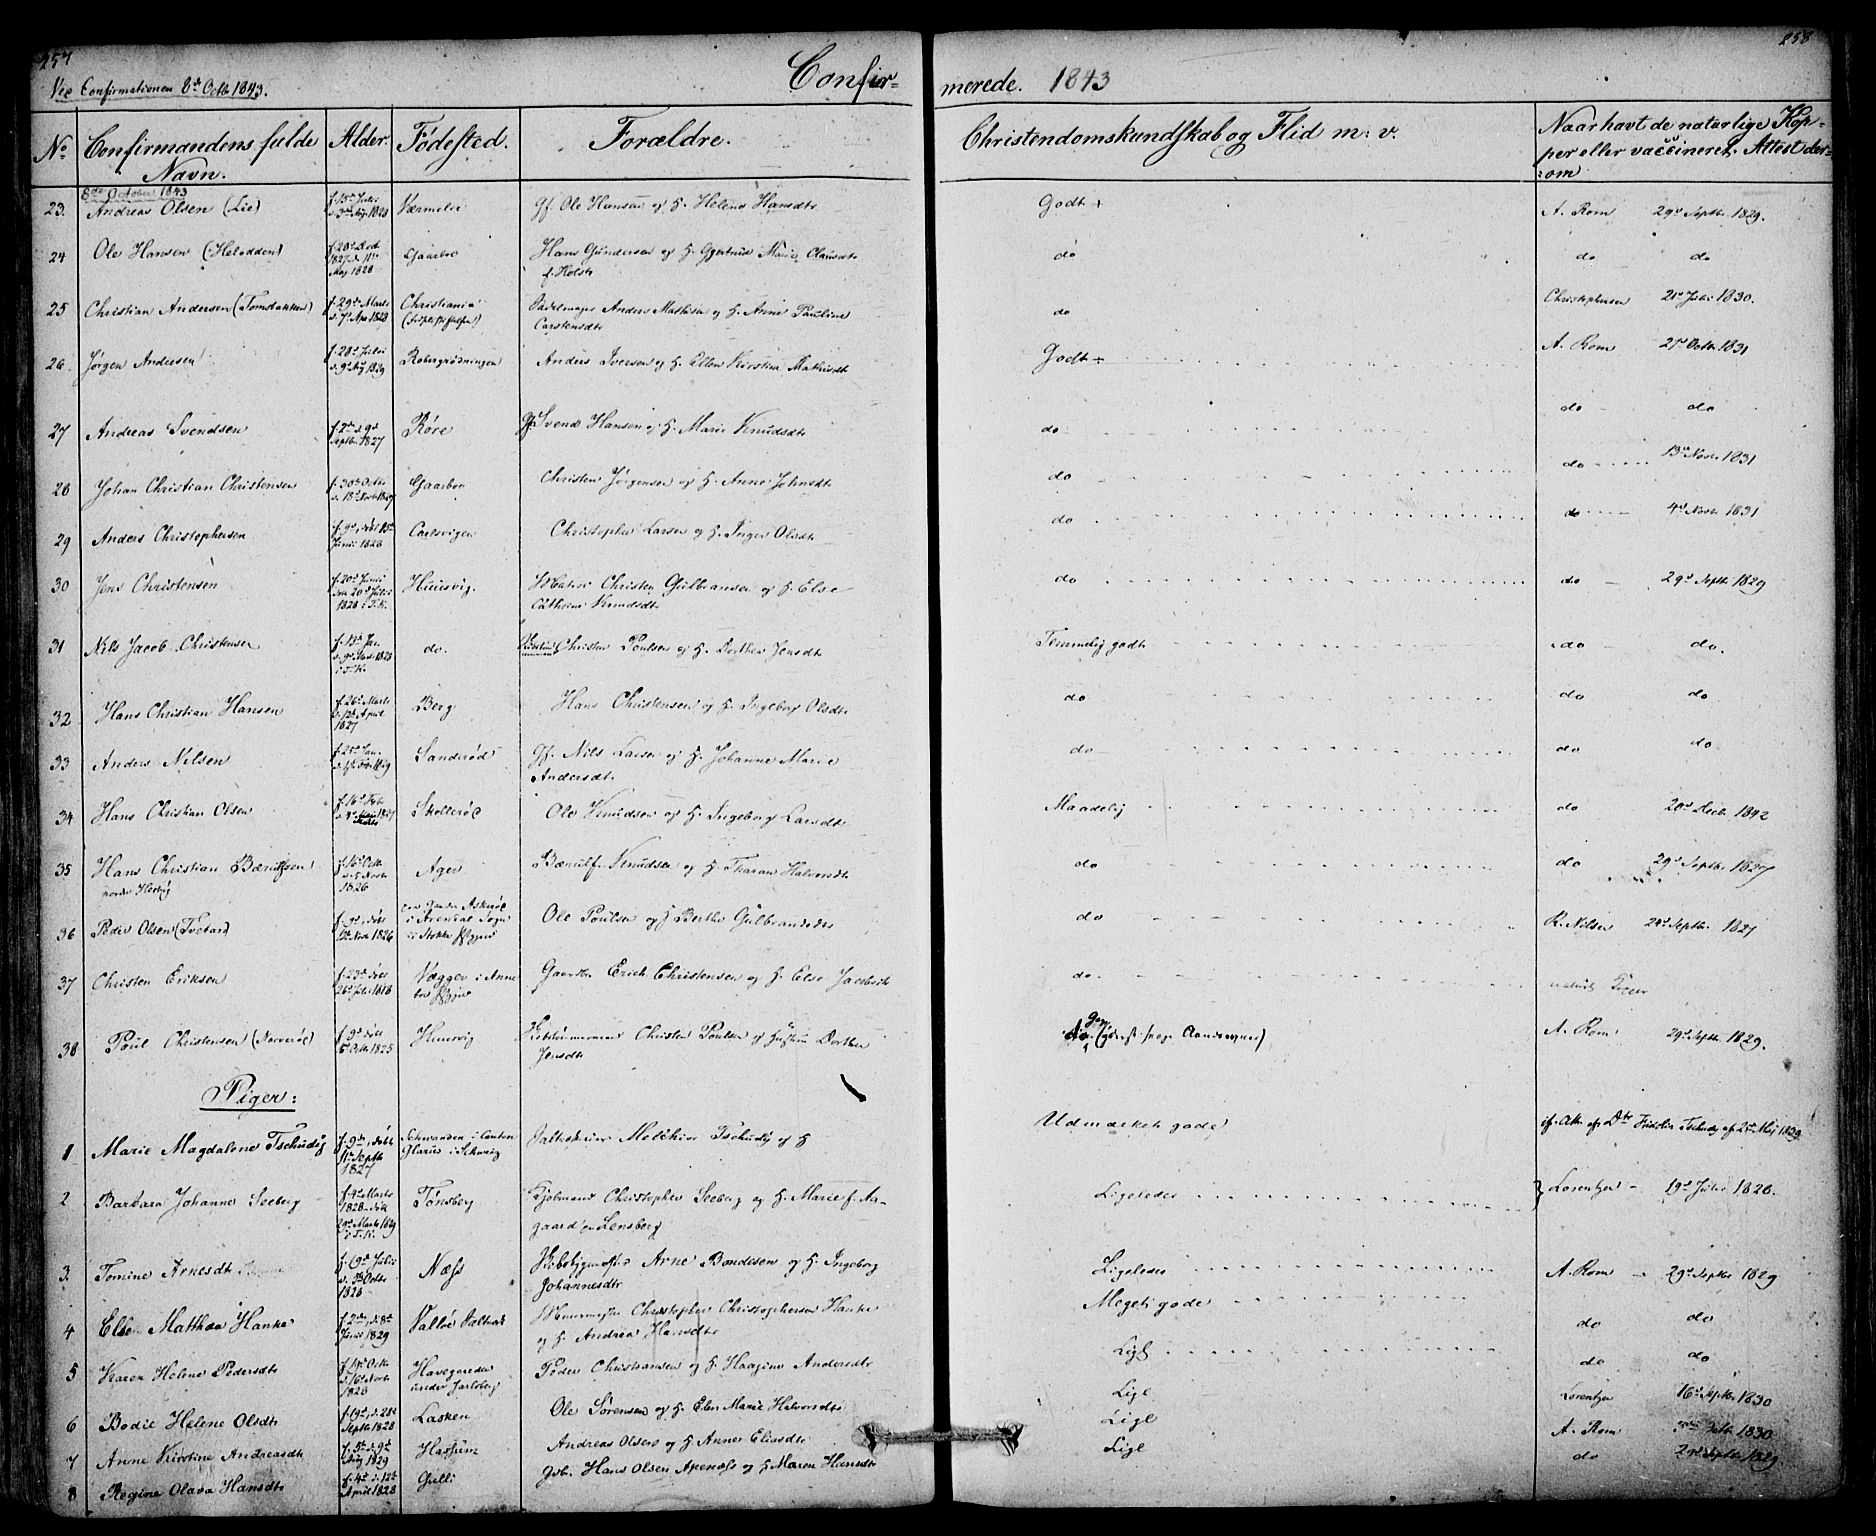 257
Ved Confirmationen 8de Octb 1843.
Confir-
merede. 1843
258
No
Confirmandens fulde Navn.
Alder.
Fødested.
Forældre.
Christendomskundskab og Flid m: v.
Naar havt de naturlige Kop-
per eller vaccineret. Attest der-
:om
8de October 1843
23. Andreas Olsen (Lie) f. 15de Julii d. 3die Aug 1828 Værmelei Gf. Ole Hansen og H. Helene Hansdtr Godt + A. Rom 29d Septbr 1829.
24 Ole Hansen (Helodden) 1827 d. 11te May 1828 Gaarboe Hans Gundersen og H. Gjertrud Marie Clausdtr f. Holst do do do
25 Christian Andersen f. 29de Marts d. 7de Apr 1828 Christiania Sadelmager Anders Mathisen og H. Anne Pauline Carstensdtr do Christophersen 21d Julii 1830.
26 Jørgen Andersen f. 28de Julii d. 9de Aug 1829 Robergrødningen Anders Iversen og H. Ellen Kirstine Mathisdtr Godt + A. Rom 21d Octb 1831
27 Andreas Svendsen f. 2de d. 9de Septbr 1827 Røre Gf. Svend Hansen og H. Marie Knudsdtr do do do
28 Johan Christian Christensen f. 30te Octbr d. 18de Novb 1827 Gaarboe Christen Jørgensen og H. Anne Johnsdtr do do 13d Novbr 1831
29 Anders Christophersen f. 9de, døbt 15de Junii 1828 Carlsvigen Christopher Larsen og H. Inger Olsdtr do do 4d Novbr 1831
30 Jens Christensen f. 20de Junii døbt 20d Julii 1828 i T.K. Huusvig. Matros Christen Gulbransen og H. Else Cathrine Knudsdtr do do 29d Septbr 1829
31 Nils Jacob Christensen f. 13de Jan. d. 9de Marts 1828 i T.K. do. Christen Poulsen og H. Dorthea Jensdtr Temmelig godt do do.
32 Hans Christian Hansen f. 26de Marts d. 12te April 1827 Berg Hans Christensen og H. Ingeborg Olsdtr do do do
33 Anders Nilsen f. 25de Jan. Sanderød Gf. Nils Larsen og H. Johanne Marie Andersdtr. do do do
34 Hans Christian Olsen f. 16de Feb 1827 Skollerød Ole Knudsen og H. Ingeborg Larsdtr Maadelig do 20d Decb. 1842
35 Hans Christian Bærulfsen f. 16de Octb d. 5 Novbr 1826 Ager Bærulf Knudsen og H. Tharan Halvorsdtr do do 29d Septbr 1827
36 Peder Olsen (Tvetan) f. 9de, døbt 12te Novb 1826 Askerød i Arendal Sogn i Stokke Ole Poulsen og H. Berthe Gulbrandsdtr do R. Nilsen 24d Septbr. 1827
37 Christen Eriksen f. 23de døbt 26de Julii 1818 Vægger i Annebo Gaardbr. Erich Christensen og H. Else Jacobsdtr do.
38 Poul Christensen (Narverød) f. 9de døbt 1825 Huusvig Christen Poulsen og Hustrue Dorthea Jensdtr A. Rom 29d Septbr. 1829.
Piger:
1 Marie Magdalene Tschudig f. 9de, døbt 11te Septb 1827 Schwanden i Canton Glarus i Schweig Melchior Tschudig og H Udmærket gode, af Dtr Fridolin Tschudy
2 Barbara Johanne Seeberg f. 4de Marts 1828 døbt 29de Marts 1829 i T.K. Tønsberg Kjøbmand Christopher Seeberg og H. Marie f. Aagaard Lensberg Ligeledes Lorentzen 19d Julii 1828.
3. Tomine Arnesdt f. 19de Julii d. 5te Octbr 1828 Næss Arne Bondesen og H. Ingeborg Johannesdtr Ligeledes A. Rom 29d Septbr 1829
4 Else Matthea Hanke f. 2de, d. 8de Junii 1829 Valløe Saltværk Christopher Christophersen Hanke og H. Andrea Hansdtr Meget gode do do
5 Karen Helene Pedersdtr f. 14de Octb d. 16de Novbr 1828 Havegaarden under Jarlsberg Peder Christiansen og H. Haagine Andersdtr Lige do do
6 Bodil Helene Olsdtr f. 19de, d. 28de Septbr 1828 Lasken Ole Sørensen og H. Elen Marie Halvorsdtr Lige Lorentzen 16d Septbr 1830
7 Anne Kirstine Andreasdtr f. 5te d. 9de Aug 1829 Hassum Andreas Olsen og H. Anne Eliasdtr Lige A. Rom 1830
8 Regine Olava Hansdtr f. 4de d. 12te April 1828 Gulli Hans Olsen Apenæss og H Maren Hansdtr Lige do 29d Septbr 1829.